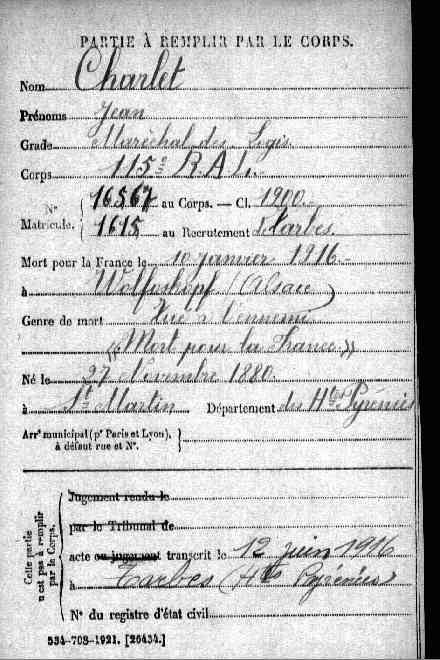 PARTIE À REMPLIR PAR LE CORPS.
Nom Charlet
Prénoms Jean
Grade Maréchal des Logis
Corps 115e R.A.L.
Nos Matricule. { 16567 au Corps. — Cl. 1900
1615 au Recrutement de Tarbes.
Mort pour la France le 10 janvier 1916
à Wolfuskopf (Alsace)
Genre de mort Tué à l'ennemi
« Mort pour la France »
Né le 27 Novembre 1880.
à St Martin Département des Htes Pyrénées
Arrt municipal (pr Paris et Lyon), à défaut rue et No. }
Cette partie n'est pas à remplir par le Corps.
Jugement rendu le
par le Tribunal de
acte ou jugement transcrit le 12 juin 1916
à Tarbes (Htes Pyrénées)
No du registre d'état civil
534-708-1921. [26434.]